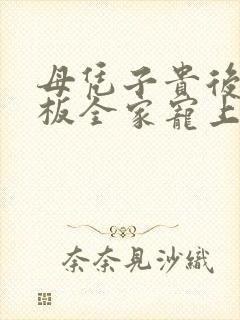 母凭子貴後
板全家寵上
奈奈見沙織